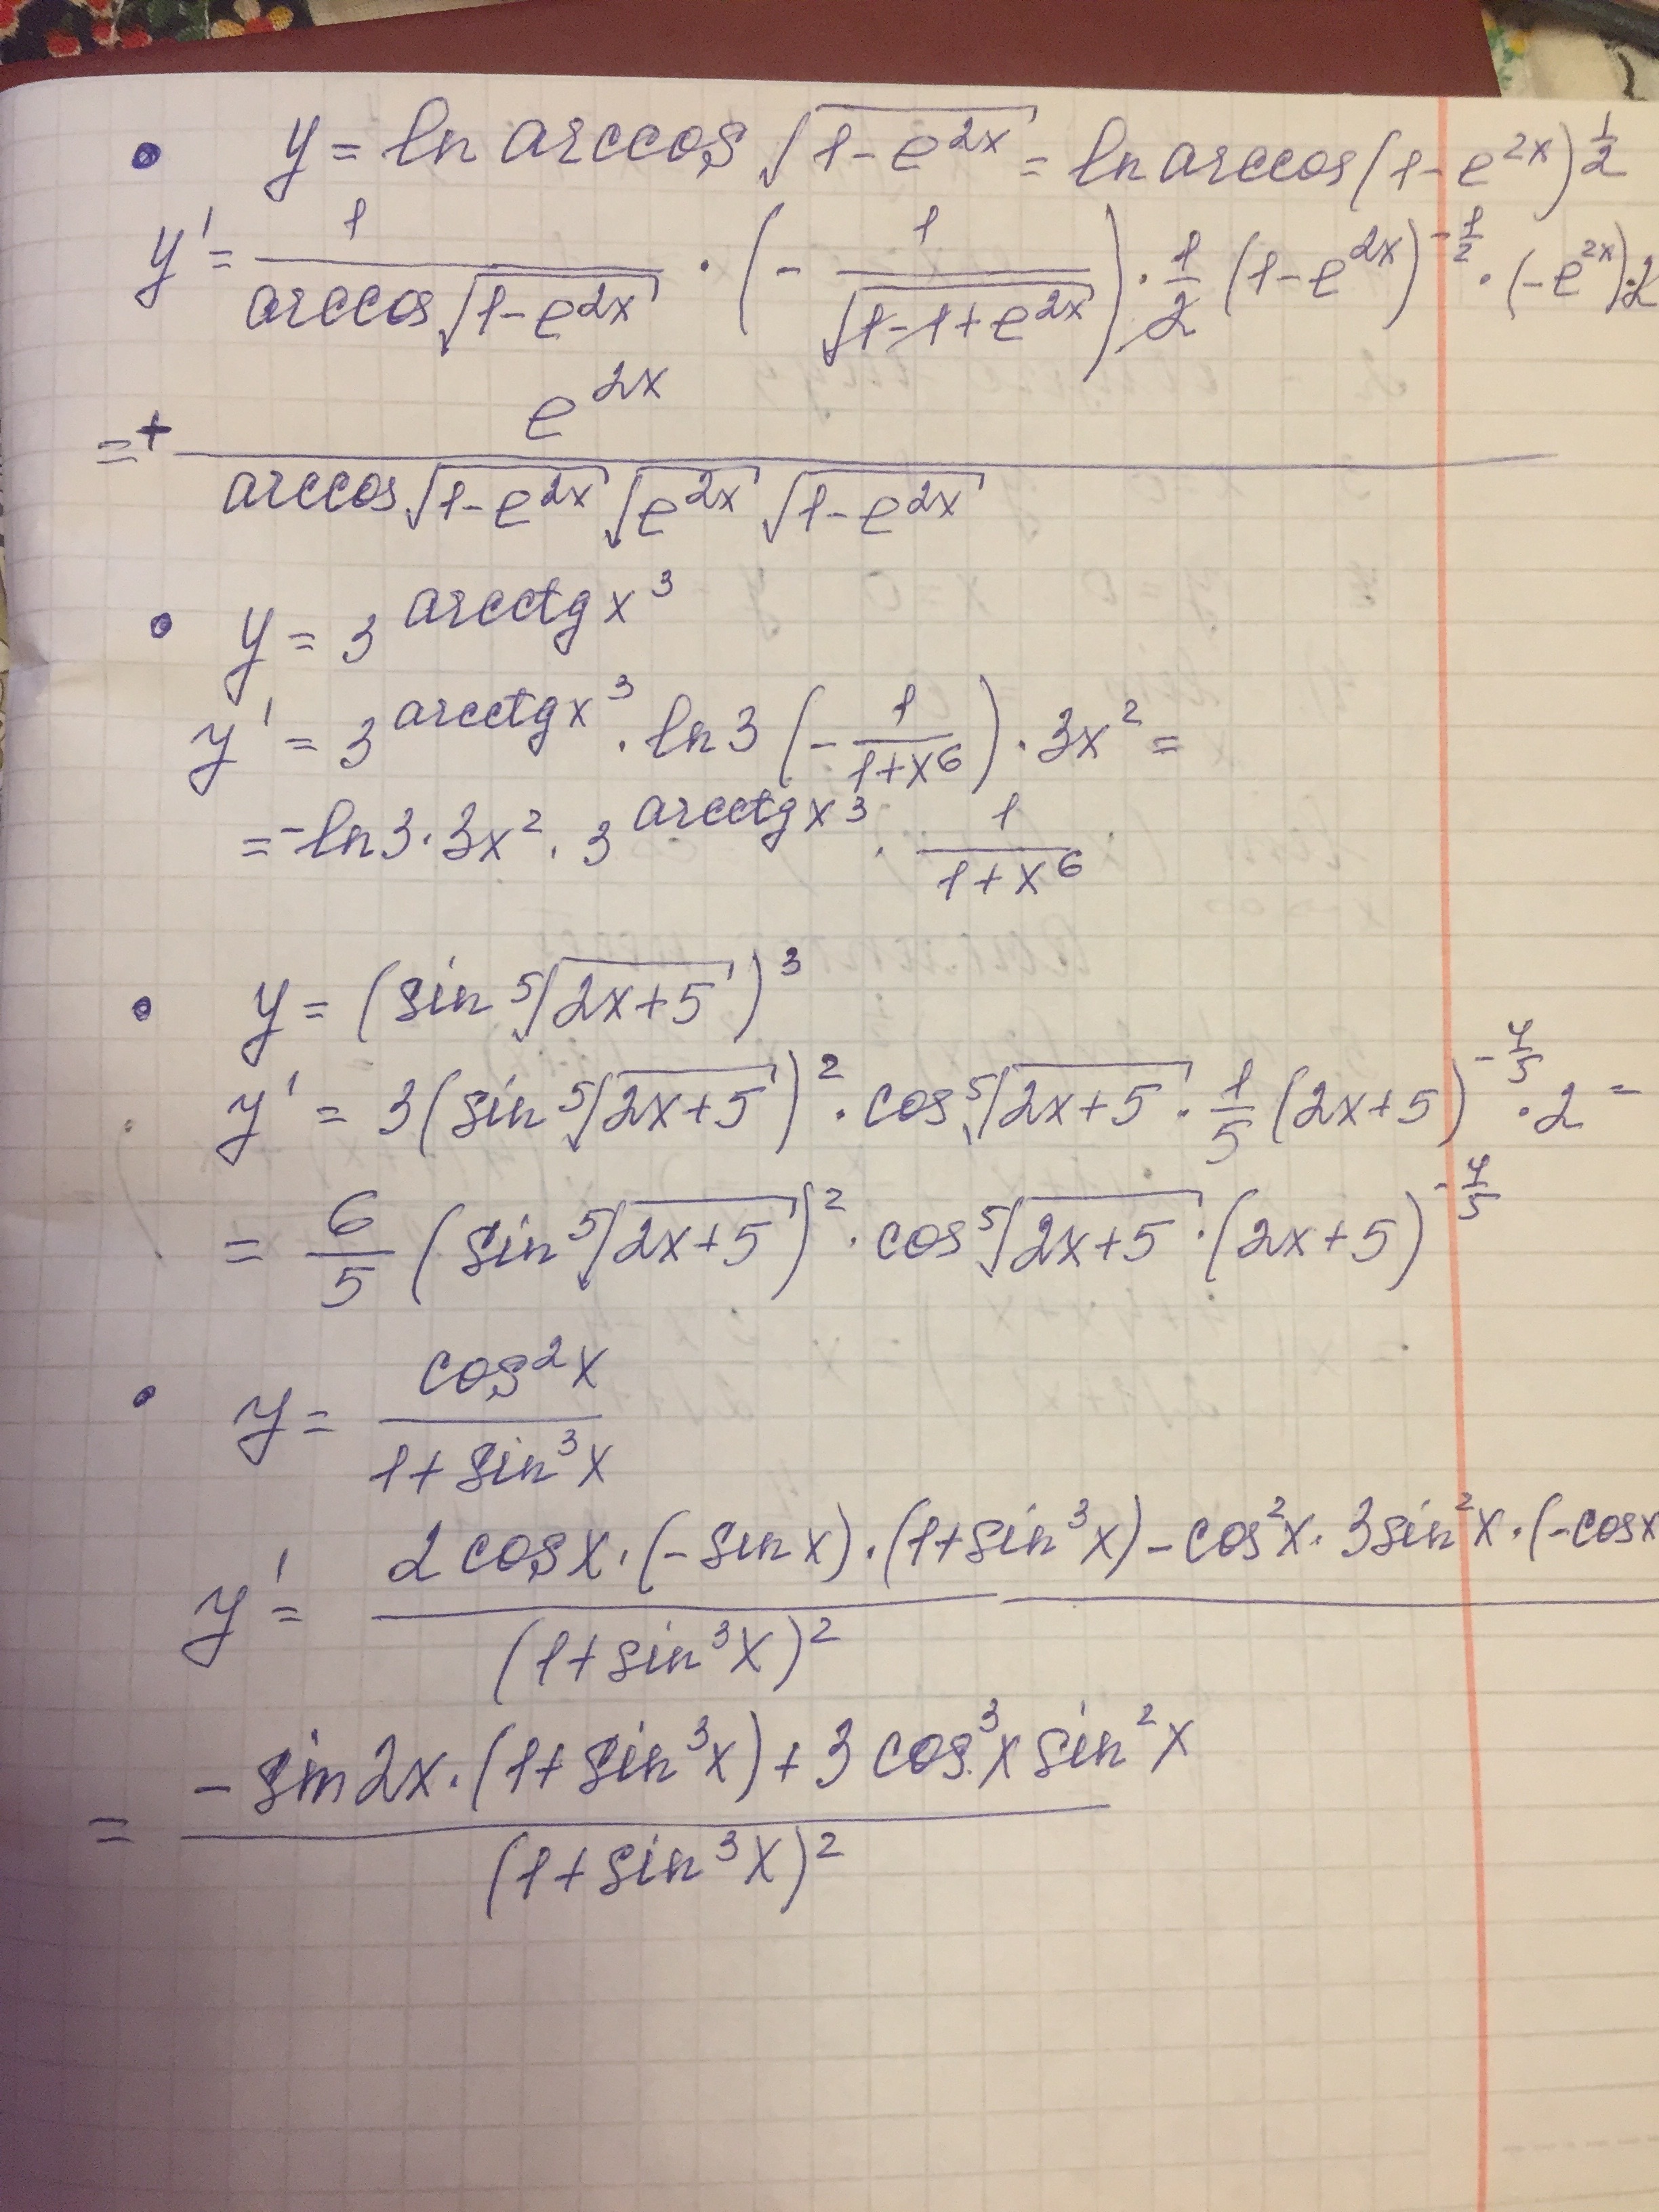 • y = ln arccos √(1-e^(2x)) = ln arccos (1-e^(2x))^(1/2)
y' = 1/(arccos √(1-e^(2x))) · (- 1/√(1-1+e^(2x))) · 1/2 (1-e^(2x))^(-1/2) · (-e^(2x))·2
= + e^(2x)/(arccos √(1-e^(2x)) √(e^(2x)) √(1-e^(2x)))
• y = 3^(arcctg x^3)
y' = 3^(arcctg x^3) · ln 3 (- 1/(1+x^6)) · 3x^2 =
= -ln 3 · 3x^2 · 3^(arcctg x^3) · 1/(1+x^6)
• y = (sin ⁵√(2x+5))^3
y' = 3 (sin ⁵√(2x+5))^2 · cos ⁵√(2x+5) · 1/5 (2x+5)^(-4/5) · 2 =
= 6/5 (sin ⁵√(2x+5))^2 · cos ⁵√(2x+5) · (2x+5)^(-4/5)
• y = cos^2 x/(1+sin^3 x)
y' = (2 cos x · (-sin x) · (1+sin^3 x) - cos^2 x · 3 sin^2 x · (-cos x)/(1+sin^3 x)^2
= (-sin 2x · (1+sin^3 x) + 3 cos^3 x sin^2 x)/(1+sin^3 x)^2